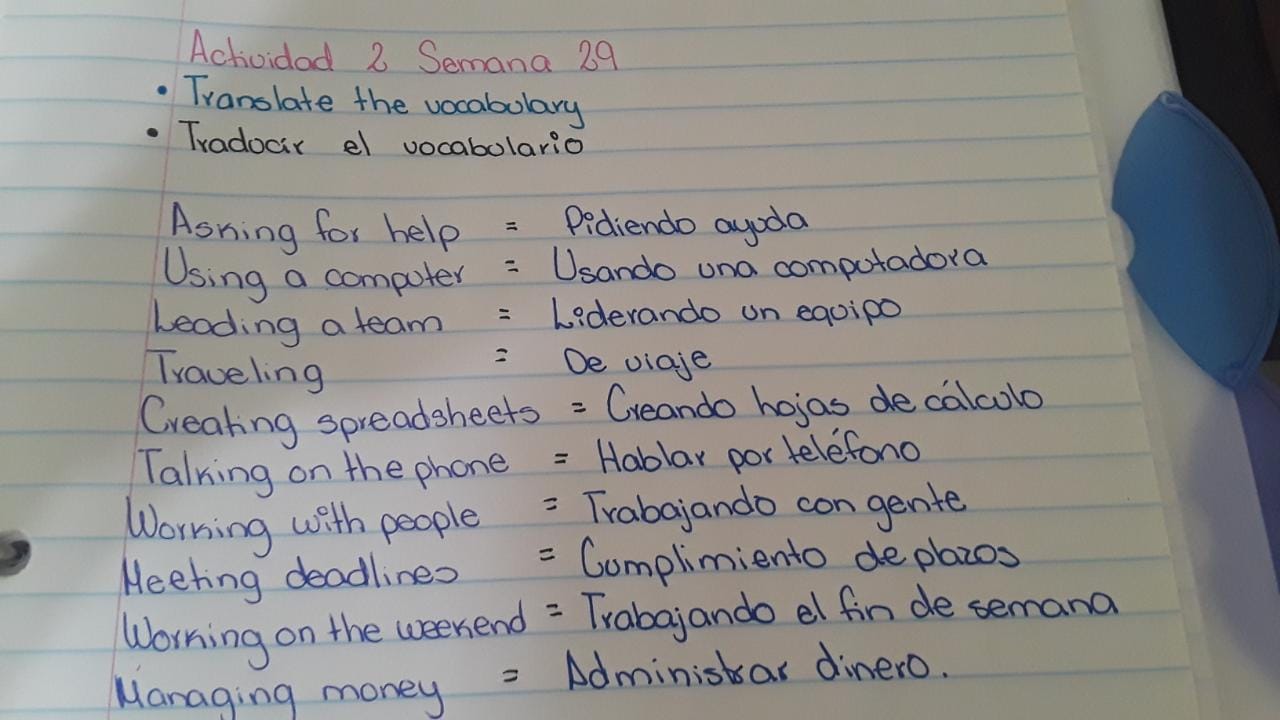 Actividad 2 Semana 29
• Translate the vocabulary
• Traducir el vocabulario
Asking for help = Pidiendo ayuda
Using a computer = Usando una computadora
Leading a team = Liderando un equipo
Traveling = De viaje
Creating spreadsheets = Creando hojas de cálculo
Talking on the phone = Hablar por teléfono
Working with people = Trabajando con gente
Meeting deadlines = Cumplimiento de plazos
Working on the weekend = Trabajando el fin de semana
Managing money = Administrar dinero.